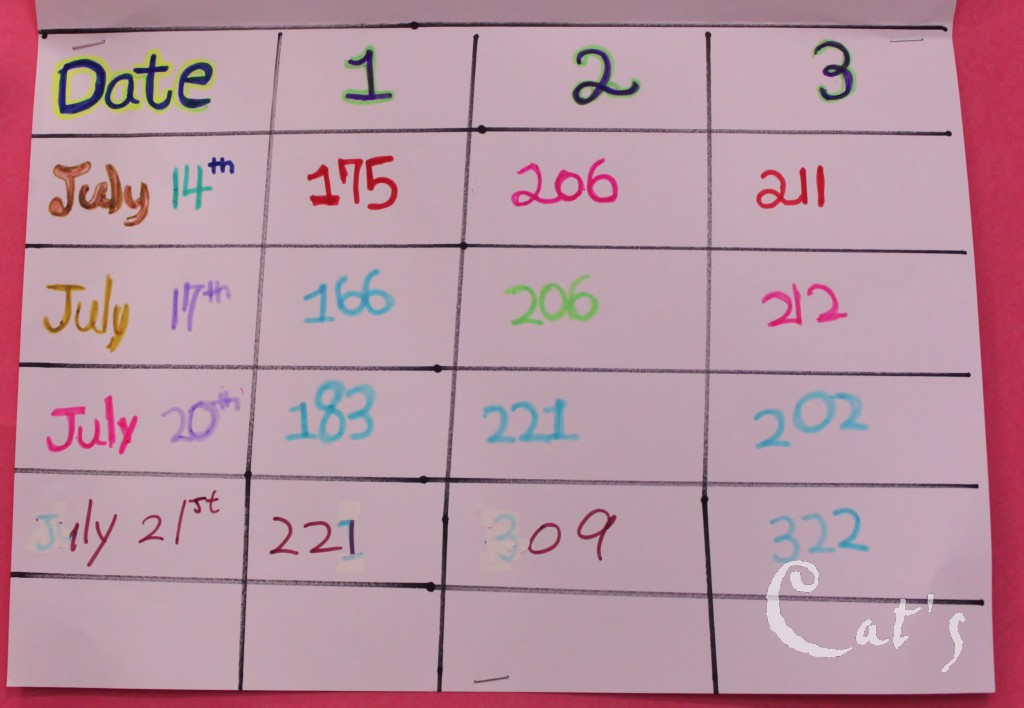 Date 1 2 3
July 14th 175 206 211
July 17th 166 206 212
July 20th 183 221 202
July 21st 221 309 322
Cat's